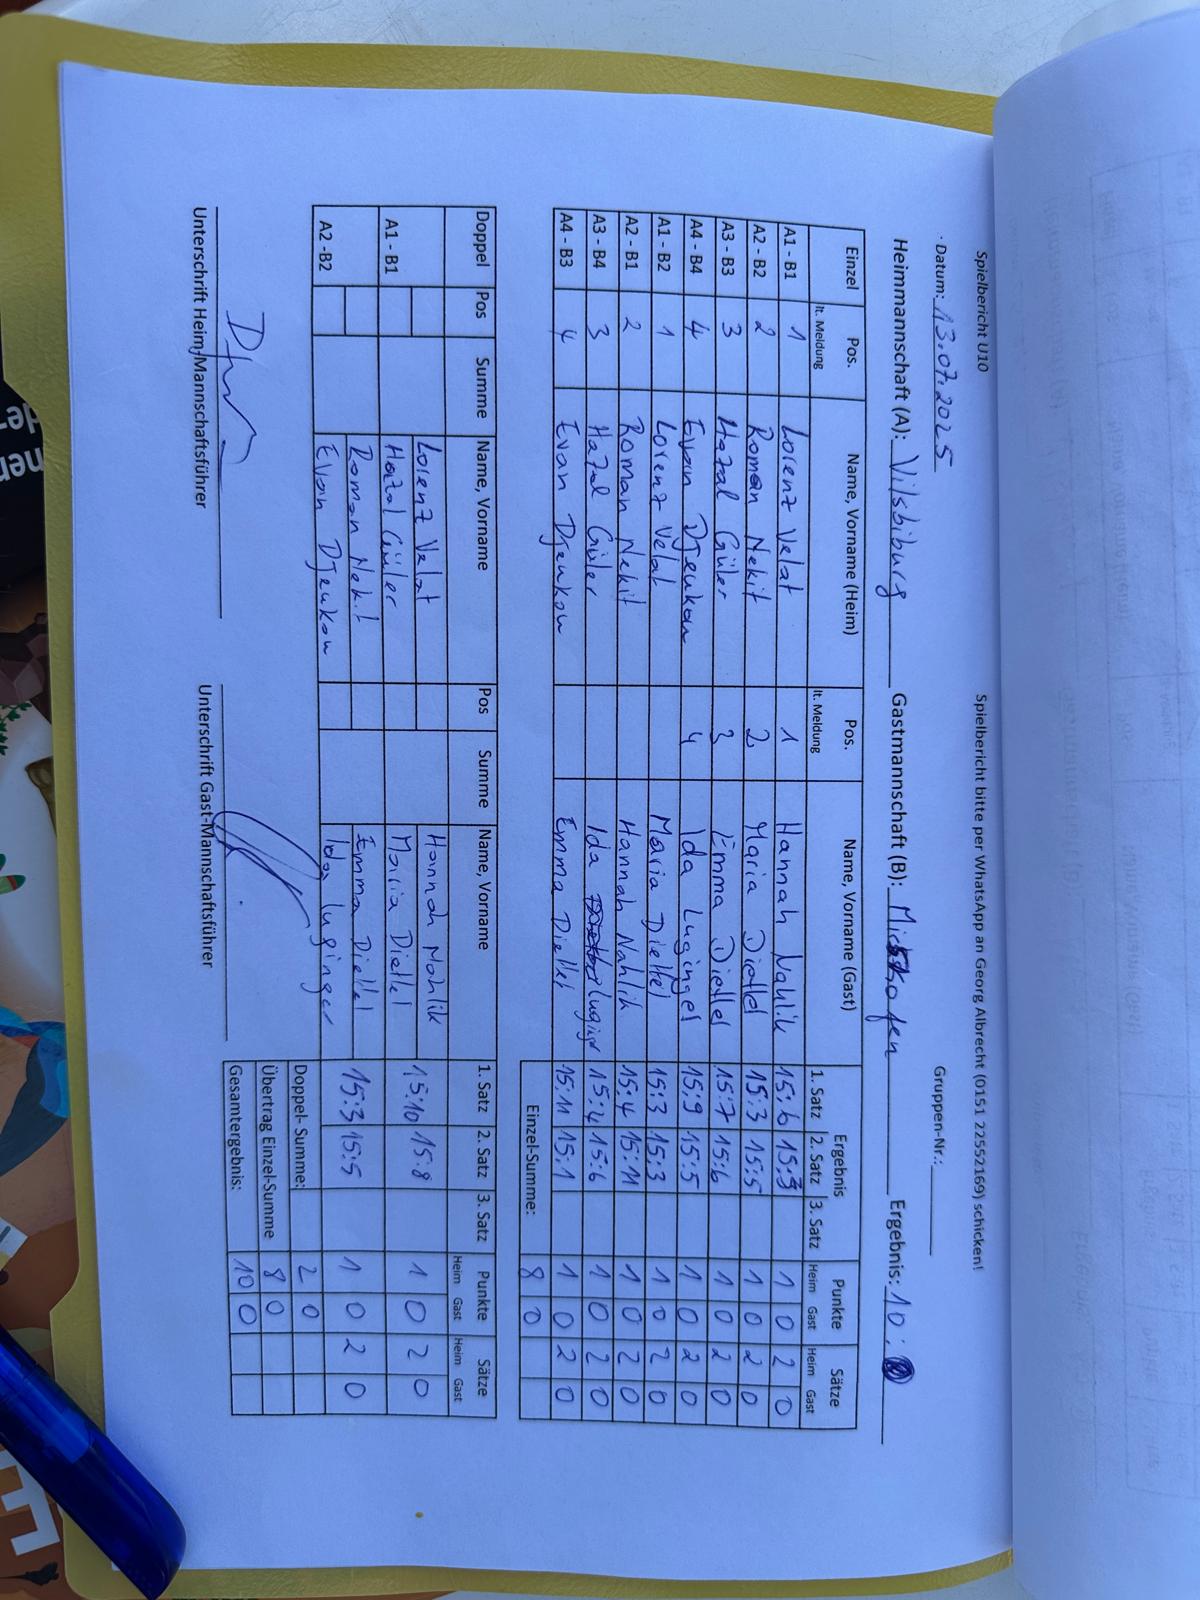 Spielbericht U10 Spielbericht bitte per WhatsApp an Georg Albrecht (0151 22552169) schicken!
Datum: 13.07.2025 Gruppen-Nr.:
Heimmannschaft (A): Vilsbiburg Gastmannschaft (B): Ergebnis: 10:0
Einzel Pos. Name, Vorname (Heim) Pos. Name, Vorname (Gast) Ergebnis Punkte Sätze
lt. Meldung lt. Meldung 1. Satz 2. Satz 3. Satz Heim Gast Heim Gast
A1 - B1 1 Lorenz Velat 1 Hannah Nahlik 15:6 15:3 1 0 2 0
A2 - B2 2 Roman Nekit 2 Maria 15:3 15:5 1 0 2 0
A3 - B3 3 Hazal Güler 3 Emma 15:7 15:6 1 0 2 0
A4 - B4 4 Evan Djenkow 4 Ida Luginger 15:9 15:5 1 0 2 0
A1 - B2 1 Lorenz Velat Maria 15:3 15:3 1 0 2 0
A2 - B1 2 Roman Nekit Hannah Nahlik 15:4 15:11 1 0 2 0
A3 - B4 3 Hazal Güler Ida 15:4 15:6 1 0 2 0
A4 - B3 4 Evan Djenkow Emma 15:11 15:1 1 0 2 0
Einzel-Summe: 8 0
Doppel Pos Summe Name, Vorname Pos Summe Name, Vorname 1. Satz 2. Satz 3. Satz Punkte Sätze
Heim Gast Heim Gast
Lorenz Velat Hannah Nahlik
A1 - B1 Hazal Güler Maria 15:10 15:8 1 0 2 0
Roman Nekit Emma
A2 -B2 Evan Djenkow Ida Luginger 15:3 15:5 1 0 2 0
Doppel- Summe: 2 0
Übertrag Einzel-Summe 8 0
Gesamtergebnis: 10 0
Unterschrift Heim-Mannschaftsführer Unterschrift Gast-Mannschaftsführer